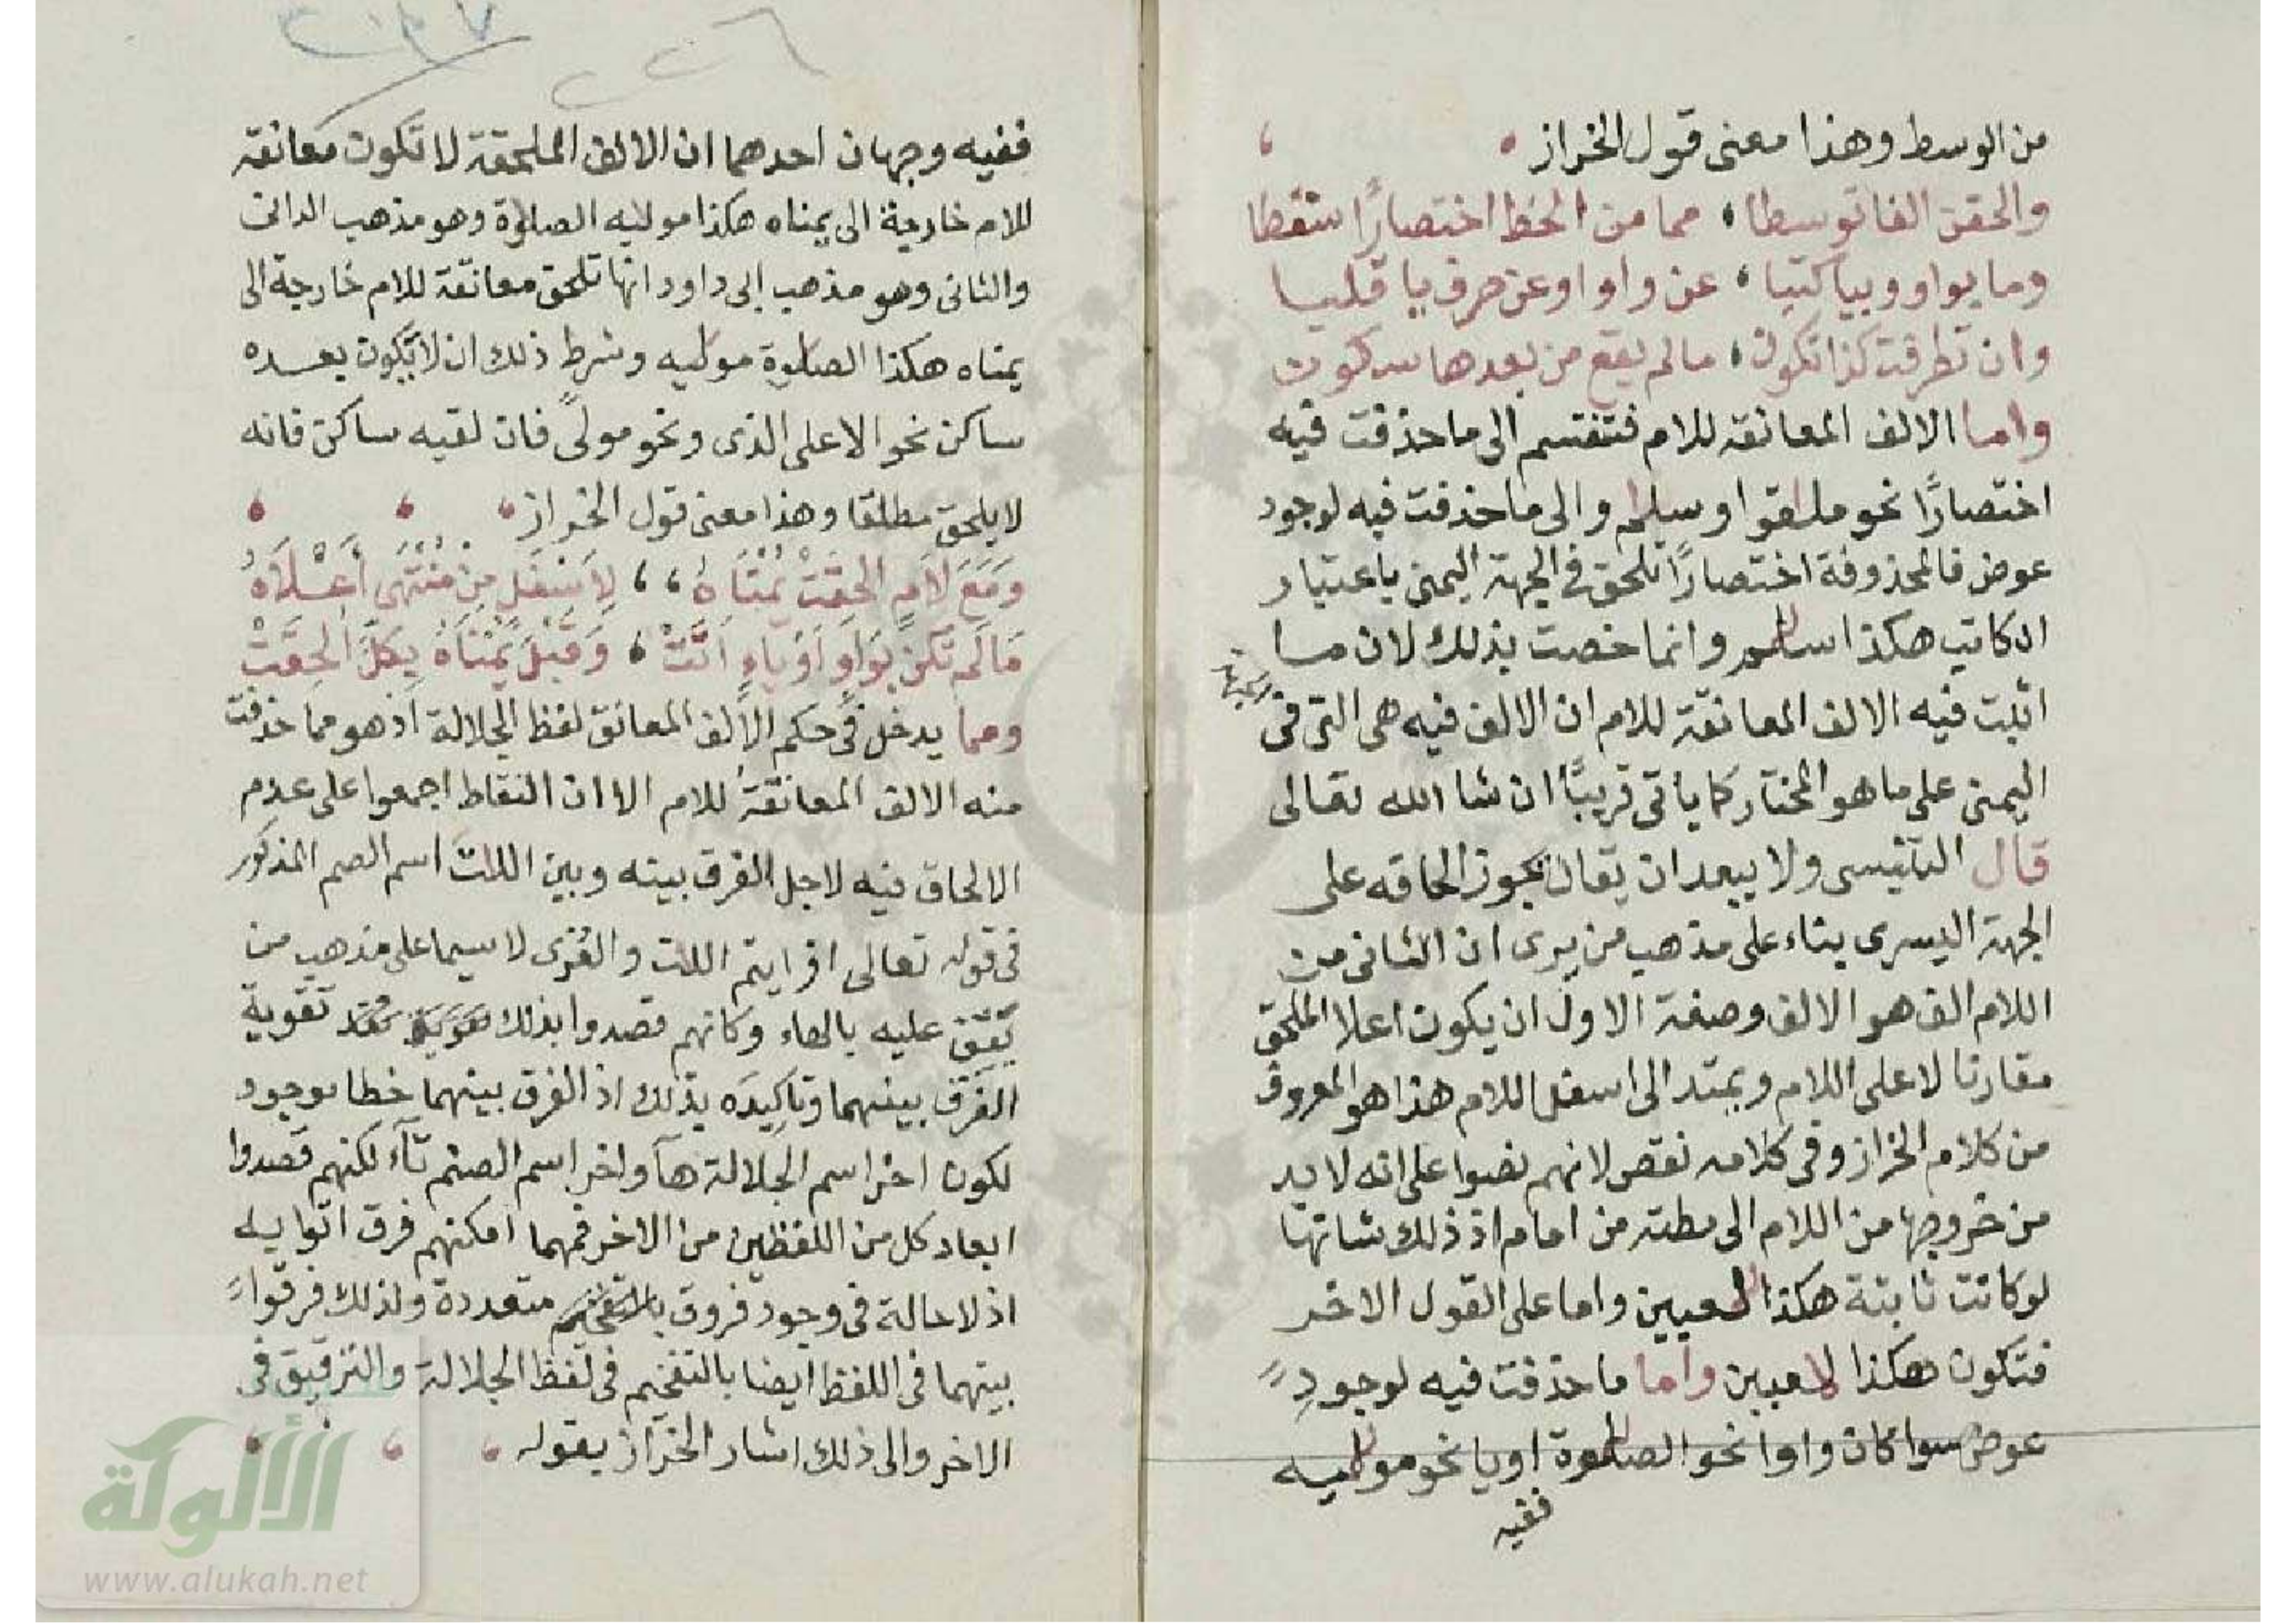 من الوسط وهذا معنى قول الخراز
والحقن الفا توسطا مما من الخط اختصارًا سقطا
وما بواو وبيا كتبا عن واو او عن حرف يا قلبا
وان تطرفت كذا تكون ما لم يقع من بعدها سكون
واما الالف المعانقة للام فتنقسم الى ما حذفت فيه
اختصارًا نحو ملقوا وسلم والى ما حذفت فيه لوجود
عوض فالمحذوفة اختصارًا تلحق في الجهة اليمنى باعتبار
الكاتب هكذا وانما خصت بذلك لان ما
اثبت فيه الالف المعانقة للام ان الالف فيه هي التي في
اليمنى على ما هو المختار كما ياتى قريبًا ان شا الله تعالى
قال التنيسى ولا يبعد ان يقال يجوز الحاقه على
الجهة اليسرى بناء على مذهب من يرى ان الثانى من
اللام الف هو الالف وصفة الاول ان يكون اعلا الملحق
مقارنا لاعلى اللام ويمتد الى اسفل اللام هذا هو المعروف
من كلام الخراز وفى كلامه نقص لانهم نصوا على انه لا بد
من خروجها من اللام الى مطته من امام اذ ذلك شانها
لو كانت ثابتة هكذا لعبين واما على القول الاخر
فتكون هكذا لاعبين واما ما حذفت فيه لوجود
عوض سوا كان واوا نحو الصلوة او يا نحو موليه
ففيه
ففيه وجهان احدهما ان الالف الملحقة لا تكون معانقة
للام خارجة الى يمناه هكذا موليه الصلوة وهو مذهب الدانى
والثانى وهو مذهب ابى داود انها تلحق معانقة للام خارجة الى
يمناه هكذا الصلوة موليه وشرط ذلك ان لا يكون بعده
ساكن نحو الاعلى الذى ونحو مولًى فان لقيه ساكن فانه
لا يلحق مطلقا وهذا معنى قول الخراز
وَمَعَ لَامٍ الحقَتْ يُمْنَاهُ لِاَسْفَلٍ مِنْ مُنْتَهَى أَعْلَاهُ
مَا لَم تكن بوَاوٍ اَوْ يَاءٍ اَتَتْ وَقبْلَ يُمْنَاهُ بِكَلّ الحِقَتْ
ومما يدخل فى حكم الالف المعانق لفظ الجلالة اذ هو مما حذفت
منه الالف المعانقة للام الا ان النقاط اجمعوا على عدم
الالحاق فيه لاجل الفرق بينه وبين اللت اسم الصم المذكور
فى قوله تعالى افرايتم اللت والعُزى لا سيما على مذهب من
يقف عليه بالهاء وكانهم قصدوا بذلك تقوية
الفرق بينهما وتاكيده بذلك اذ الفرق بينهما خطا موجود
لكون اخر اسم الجلالة هآ واخر اسم الصنم تآء لكنهم قصدوا
ابعاد كل من اللفظين من الاخر فمهما امكنهم فرق اتوا به
اذ لا حالة فى وجود فروق متعددة ولذلك فرقوا
بينهما فى اللفظ ايضا بالتفخيم فى لفظ الجلالة والترقيق فى
الاخر والى ذلك اشار الخراز بقوله
الألوكة
www.alukah.net